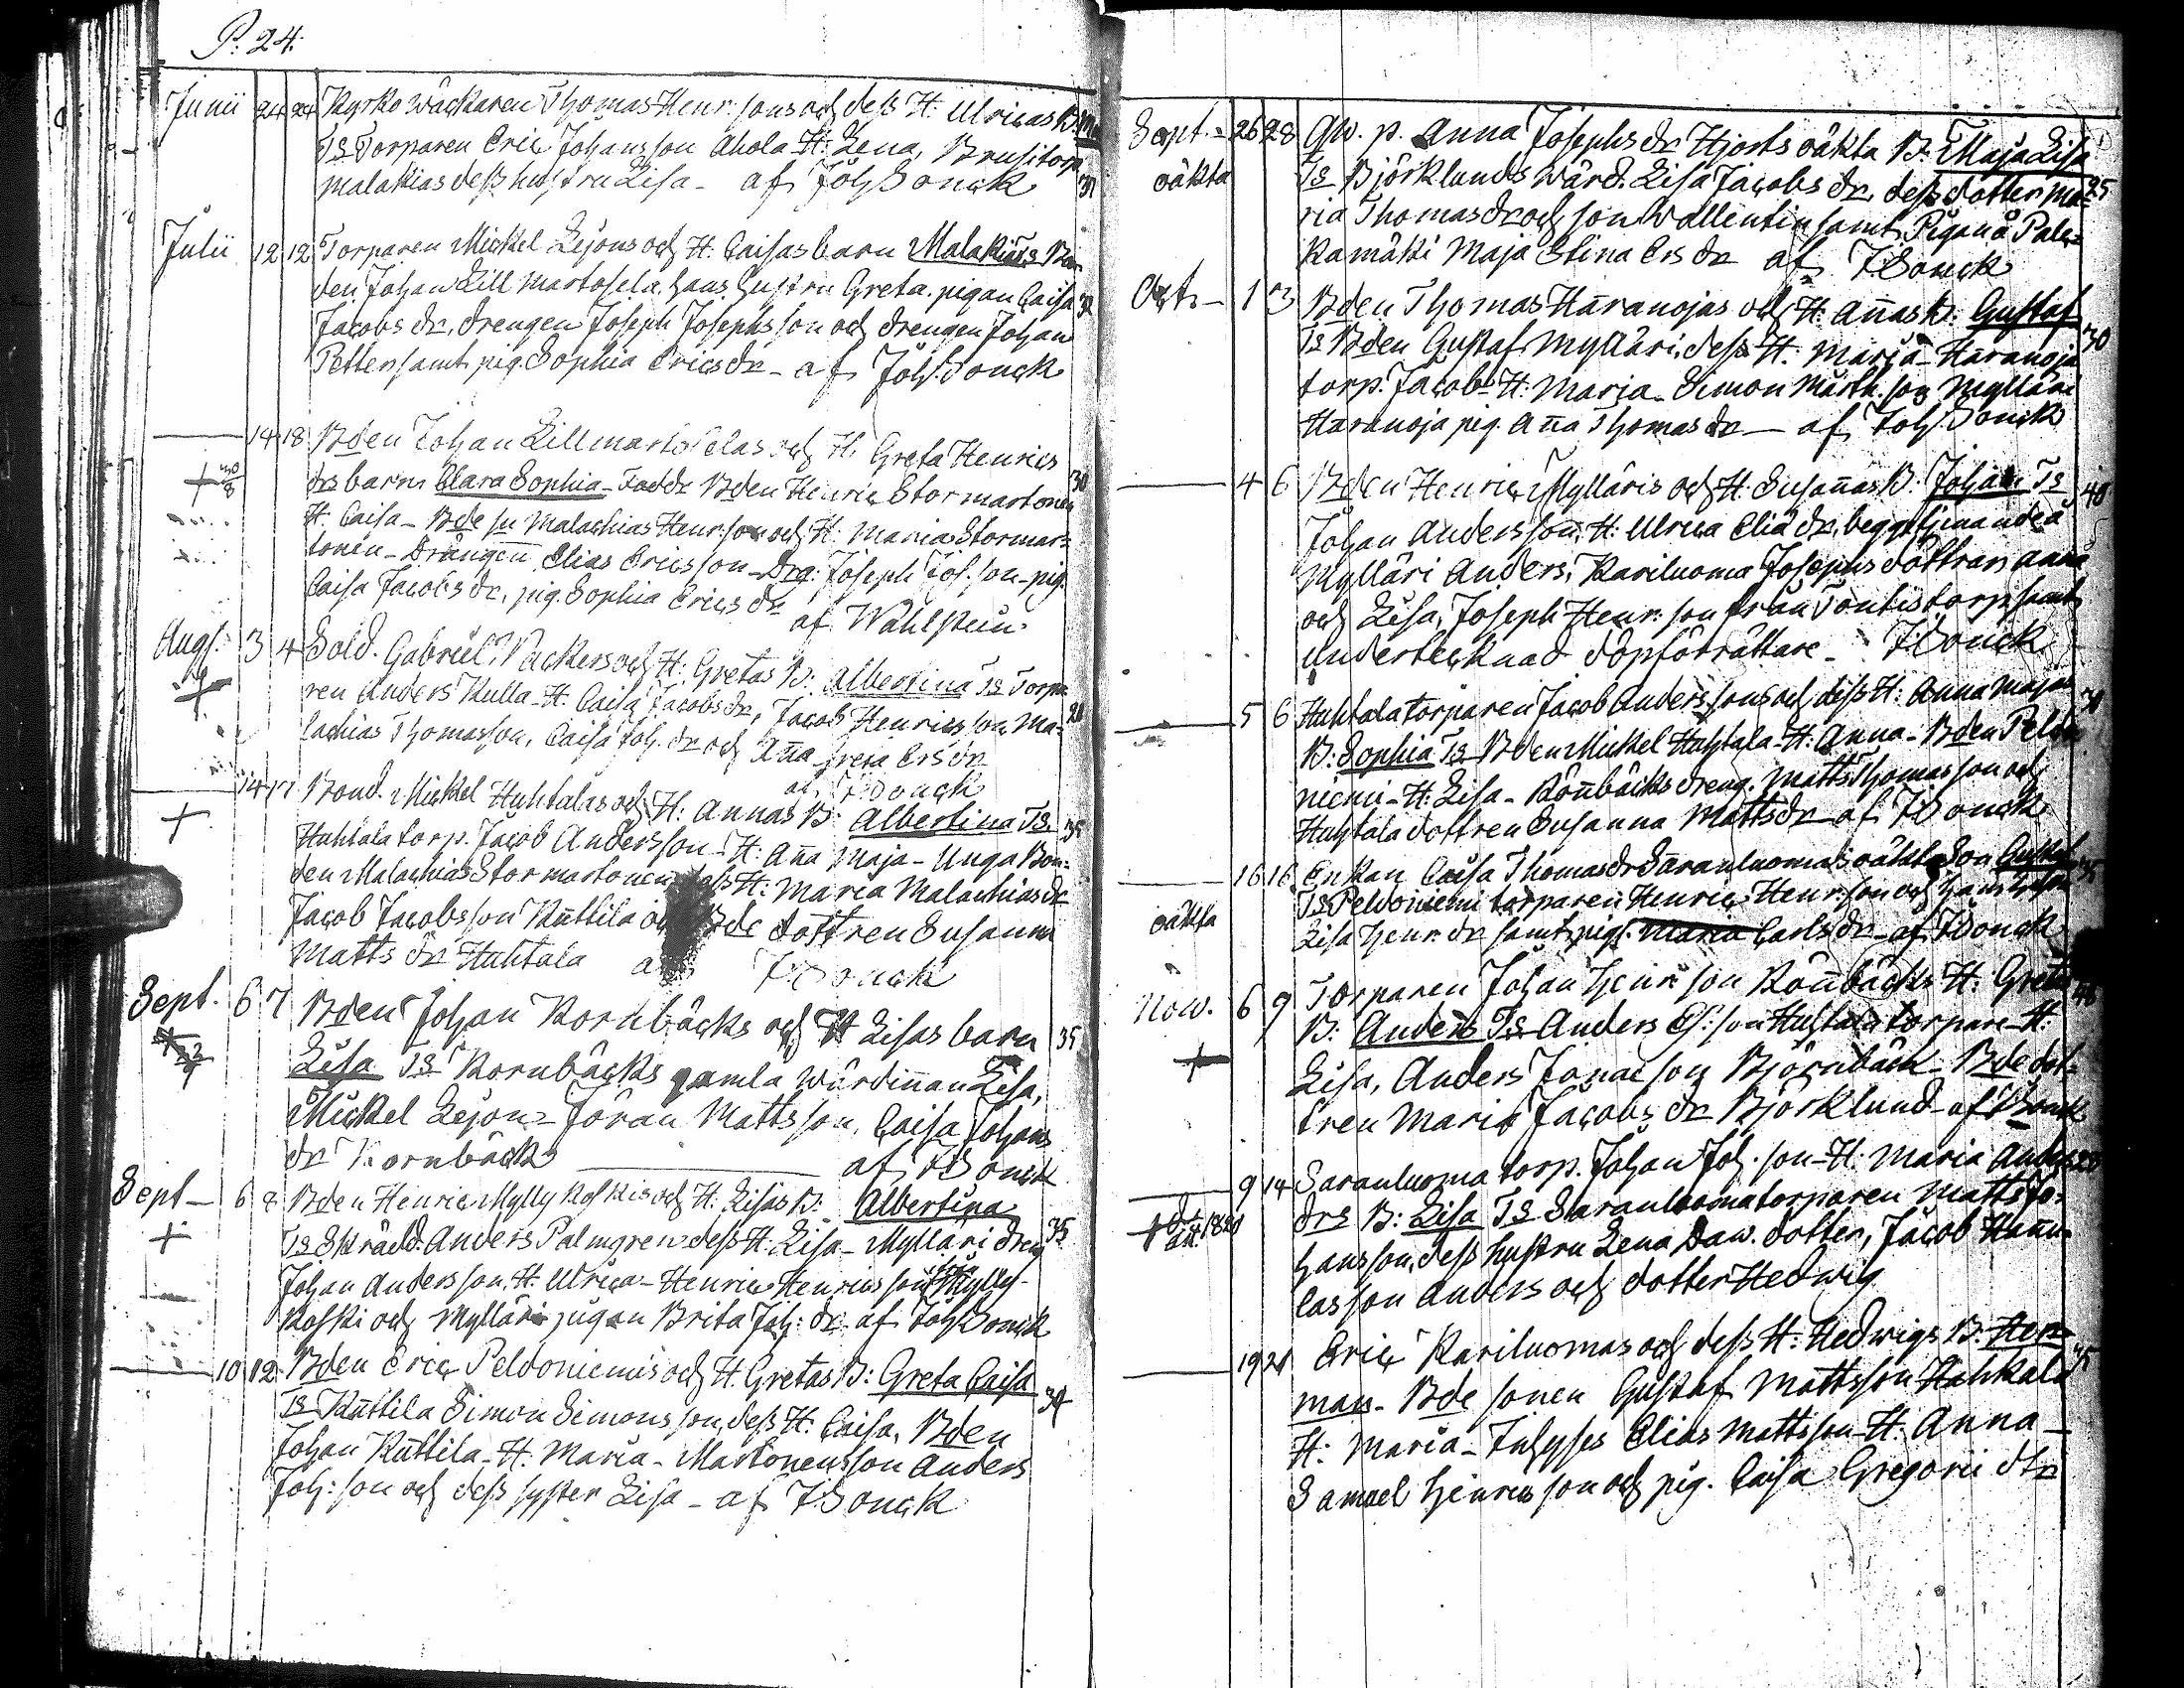 P. 24.
Junii 24 24 Kyrko wäckaren Thomas Henr: sons och dess H: Ulricas B:
Ts Torparen Eric Johansson Ahola H: Lena, Brusitorp
Malakias dess hustru Lisa - af Joh Sonck 31
Julii 12 12 Torparen Mickel Lejons och H. Caisas barn Malakias Ts Bon
den Johan Lill Martosela. hans hustru Greta. pigan Caisa
Jacobs dr, drengen Joseph Josephsson och drengen Johan
Petter samt pig. Sophia Ericsdr - af Joh. Sonck
14 18 Bden Johan Lillmartoselas och H. Greta Henrics
drs barn Clara Sophia - Faddr Bden Henric Stormartonen 30
H. Caisa - Bde sn Malachias Henr: son och H: Maria Stormar=
tonen - Drängen Elias Ericsson - Drg: Joseph Jos. son - pig.
Caisa Jacobs dr, pig. Sophia Erics dr
af Wahlstein
Augs: 3 4 Sold. Gabriel Packers och H: Gretas B: Albertina Ts Torpa
ren Anders Kulla - H. Caisa Jacobs dr, Jacob Henricsson, Ma= 28
lachias Thomasson, Caisa Joh. dr och Ana Greta Ers dr
af J Sonck
14 17 Bond. Mickel Huhtalas och H: Annas B: Albertina Ts. 35
Huhtala torp. Jacob Andersson - H: Ana Maja - Unga Bon=
den Malachias Stormartonen dess H: Maria Malachias dr
Jacob Jacobsson Küttila och Bde dottren Susanna
Matts dr Huhtala af J Sonck
Sept. 6 7 Bden Johan Kornbäcks och H Lisas barn 35
Lisa Ts Kornbäcks gamla wärdinnan Lisa,
Mickel Lejon - Jöran Mattsson, Caisa Johans
dr Kornbäck af J Sonck
Sept - 6 8 Bden Henric Myllykoskis och H. Lisas B: Albertina
Ts Skrädd. Anders Palmgren dess H: Lisa - Mylläri dreng 35
Johan Andersson, H. Ulrica - Henric Henrics son Mylly-
koski och Mylläri pigan Brita Joh: dr af Joh Sonck
10 12 Bden Eric Peldoniemis och H. Gretas B: Greta Caisa
Ts Küttila Simon Simonsson, dess H: Caisa, Bden 34
Johan Küttila - H. Maria - Martonens son Anders
Joh: son och dess syster Lisa - af J Sonck
Sept. - 26 28 Qw. p. Anna Josephs dr Hjorts oäkta B: Maja Lisa
oäkta Ts Björklunds Wärd. Lisa Jacobs dr, dess dotter Ma= 25
ria Thomasdr och son Wallentin samt Pigan å Pala=
kamäki Maja Stina Ers dr af J Sonck
Octr - 1 3 Bden Thomas Haranojas och H: Anas B: Gustaf
Ts Bden Gustaf Mylläri, dess H: Maria - Haranoja 30
torp. Jacob H: Maria - Simon Märth. son Mylläri
Haranoja pig. Ana Thomas dr - af Joh. Sonck
4 6 Bden Henric Mylläris och H: Susanas B. Johan Ts 40
Johan Andersson, H: Ulrica Elia dr, begge tjenande å
Mylläri Anders, Kariluoma Josephs döttran Anna
och Lisa, Joseph Henr: son från Töntis torp samt
undertecknad döpförrättare - J Sonck
5 6 Huhtala torparen Jacob Anderssons och dess H: Anna Majas
B: Sophia Ts Bden Mickel Huhtala - H: Anna - Bden Peldo
niemi - H: Lisa - Rönbäcks dreng. Matts Thomasson och
Huhtala dottren Susanna Mattsdr - af J Sonck
16 16 Enkan Caisa Thomasdr Saranluomas oäkta Son Gustaf 35
Ts Peldoniemi torparen Henric Henr: son och hans hustru
oäkta Lisa Henr. dr samt pig. Maria Carls dr - af J Sonck
Now. 6 9 Torparen Johan Henr: son Rönbäcks H: Greta
B: Anders Ts Anders Es: son Huhtala torpare - H:
Lisa, Anders Jonae son Björnbäck - Bde dot=
tren Maria Jacobs dr Björklund - af J Sonck
9 14 Saranluoma torp. Johan Joh. son - H: Maria Anders 28
drs B: Lisa Ts Saranluoma torparen Matts Jo=
hansson, dess hustru Lena Daw. dotter, Jacob
lasson Anders och dotter Hedwig
19 21 Eric Kariluomas och dess H: Hedwigs B: Her=
man - Bde sonen Gustaf Mattsson Huhtala
H: Maria - Elias Mattsson - H: Anna -
Samuel Henricsson och pig. Caisa Gregorii dtr